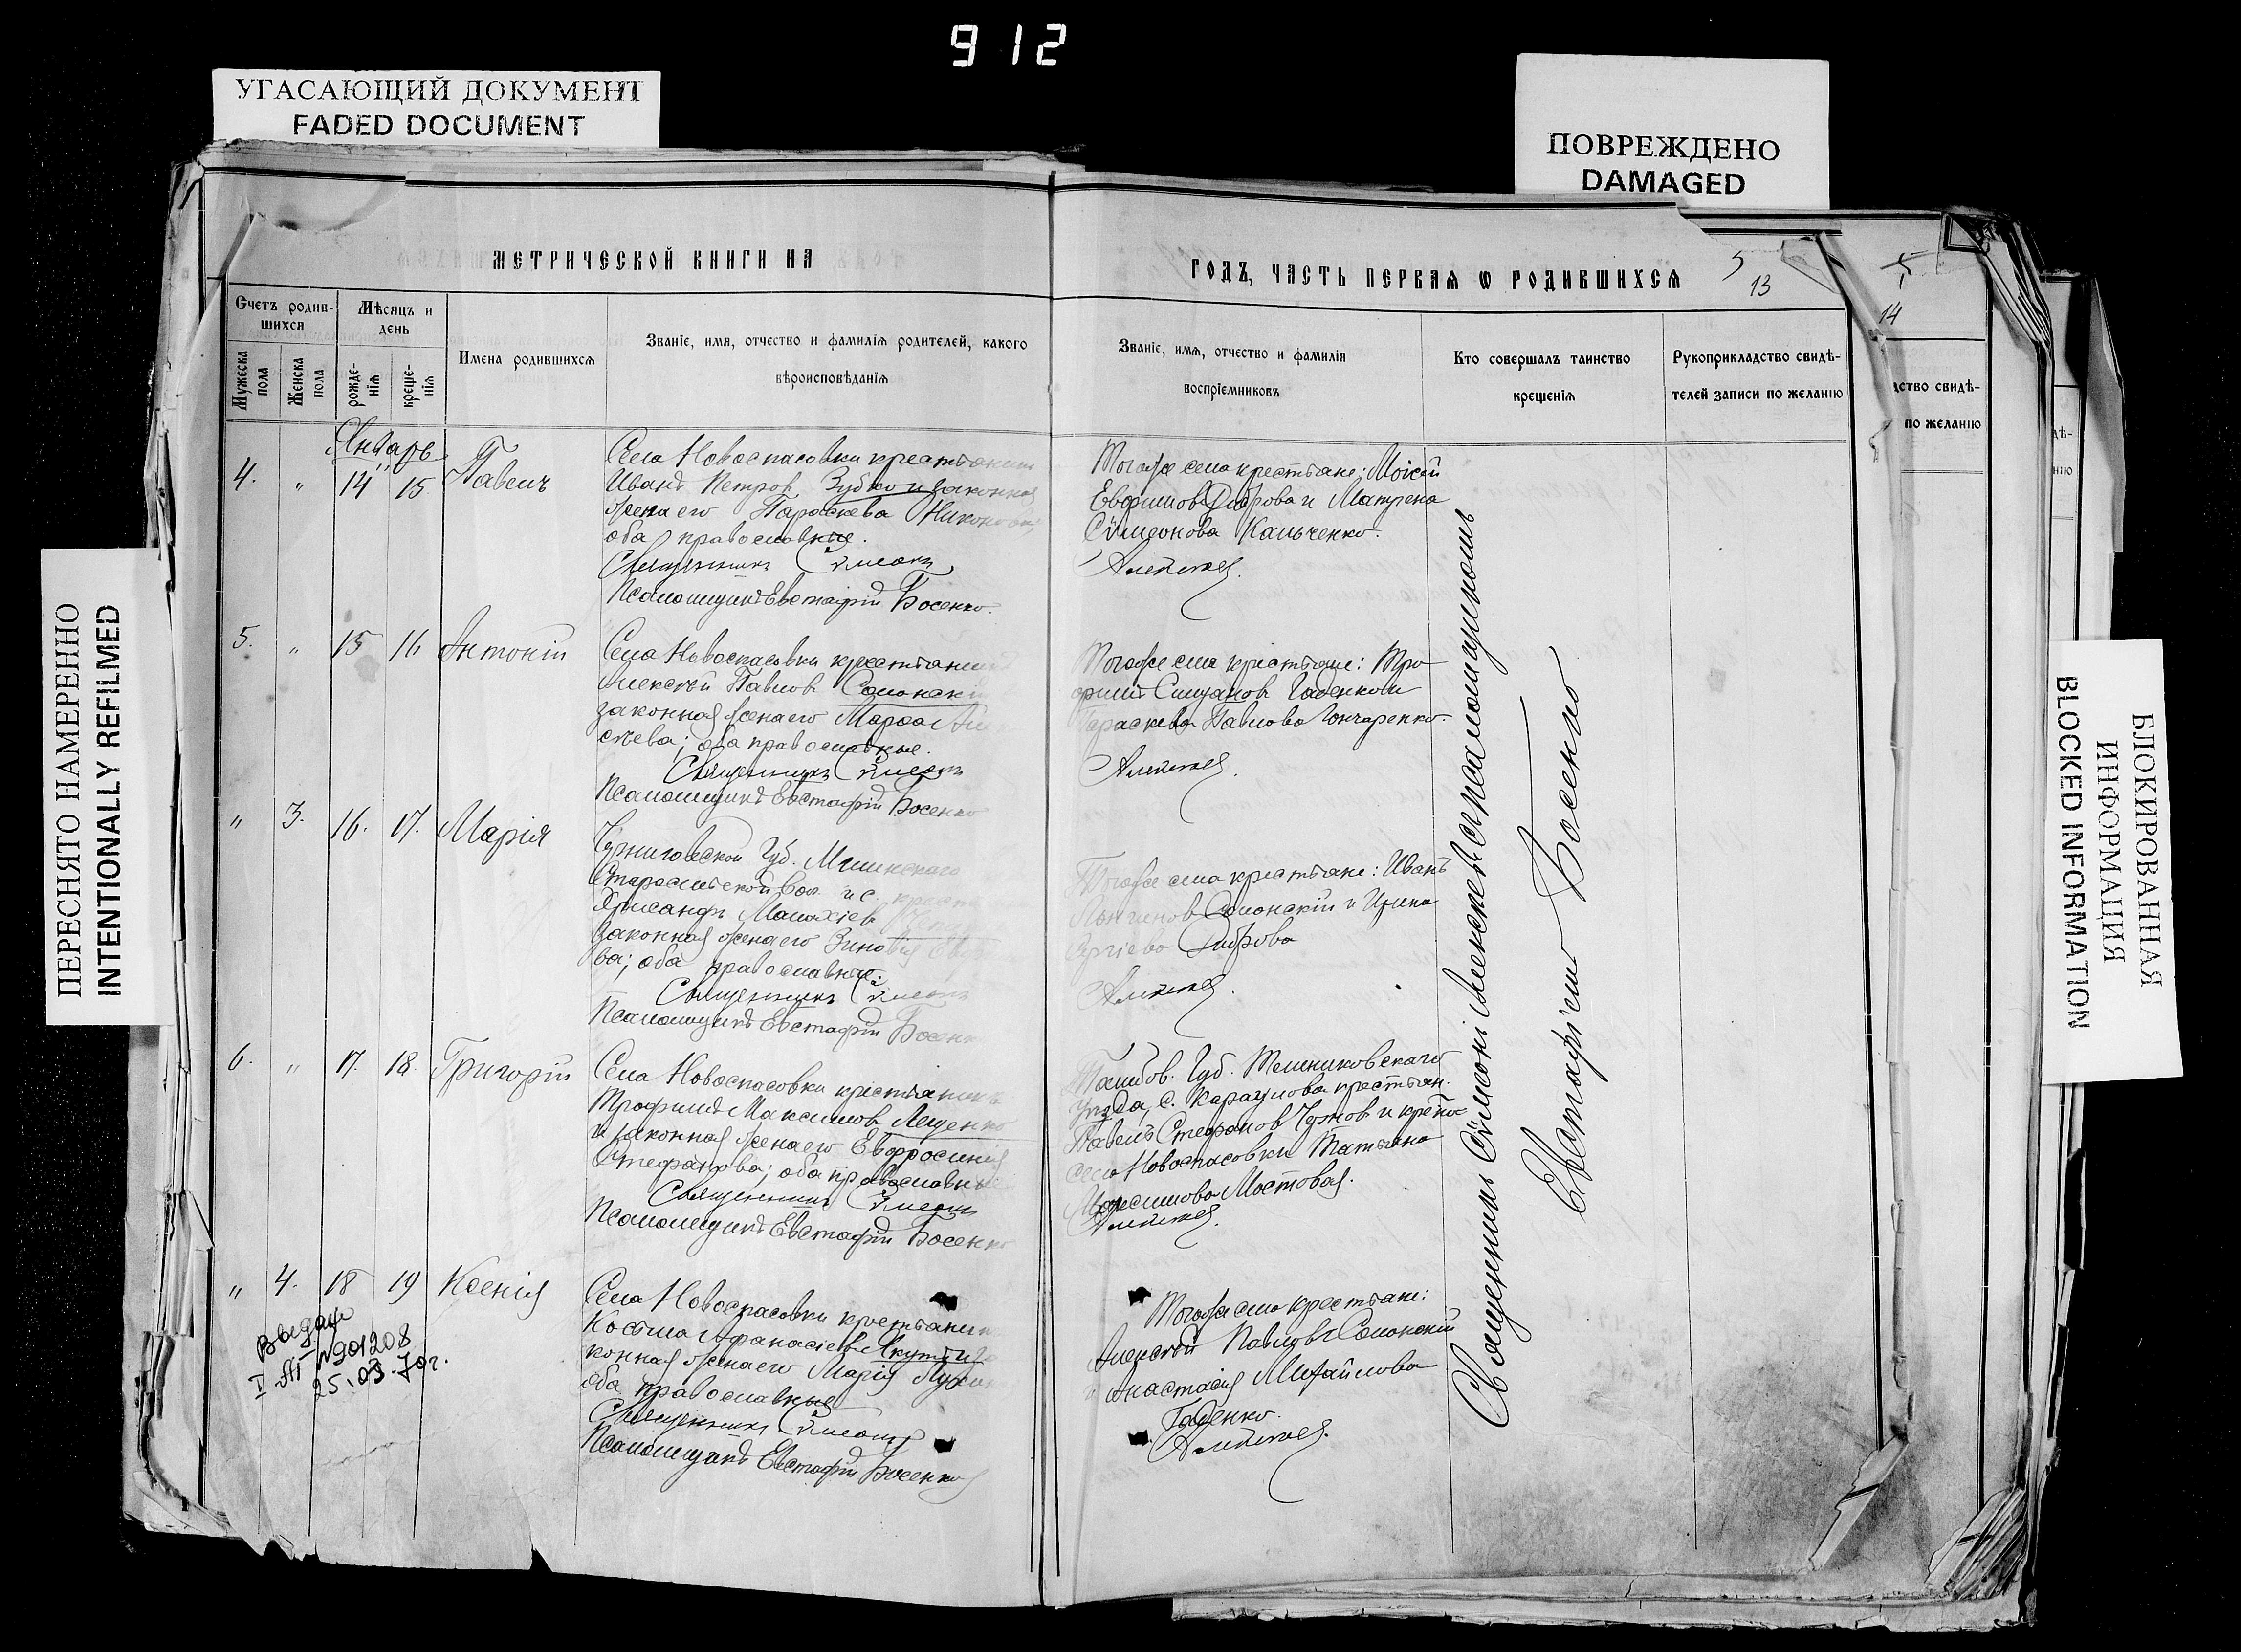 912
УГАСАЮЩИЙ ДОКУМЕНТ
FADED DOCUMENT
ПОВРЕЖДЕНО
DAMAGED
ПЕРЕСНЯТО НАМЕРЕННО
INTENTIONALLY REFILMED
БЛОКИРОВАННАЯ
ИНФОРМАЦИЯ
BLOCKED INFORMATION
МЕТРИЧЕСКОЙ КНИГИ НА
ГОДЪ, ЧАСТЬ ПЕРВАЯ Ѡ РОДИВШИХСЯ
5
13
14
Счетъ родив-
шихся
Мужеска
пола
Женска
пола
Мѣсяцъ и
день
рожде-
нія
креще-
нія
Имена родившихся
Званіе, имя, отчество и фамилія родителей, какого
вѣроисповѣданія
Званіе, имя, отчество и фамилія
воспріемниковъ
Кто совершалъ таинство
крещенія
Рукоприкладство свидѣ-
телей записи по желанію
дство свидѣ-
по желанію
Январь
4. " 14 15 Павелъ
Села Новоспасовки крестьянинъ
Иванъ Петровъ Зубко и законная
жена его Параскева Никонова;
оба православные.
Священникъ Сѵмеонъ
Псаломщикъ Евстафій Босенко.
Тогоже села крестьяне: Моісей
Евфимовъ Диброва и Матрена
Сѵмеонова Кальченко.
5. " 15 16 Антоній
Села Новоспасовки крестьянин
Алексѣй Павловъ Солонскі
законная жена его Марфа
сѣева; оба православные.
Священникъ Сѵмеонъ
Псаломщикъ Евстафій Босенко
Тогоже села крестьяне: Тро-
фимъ Гаденко и
Параскева Павлова Гончаренко.
" 3. 16. 17. Марія
Черниговской Губ. Мглинскаго
вол. и с.
законная жена его Зиновія
ва; оба православные.
Священникъ Сѵмеонъ
Псаломщикъ Евстафій Босенк
Тогоже села крестьяне: Иванъ
Лонгиновъ Солонскій и Ирина
Диброва
6. " 17. 18. Григорій
Села Новоспасовки крестьянинъ
Трофимъ Максимовъ Лещенко
и законная жена его Евфросинія
Стефанова; оба православные
Священникъ Сѵмеонъ
Псаломщикъ Евстафій Босенко
Тамбов. Губ. Темниковскаго
Уѣзда, с. Караулова крестьян.
Павелъ Стефановъ и крес-ка
села Новоспасовки Татьяна
Максимова Мостовая.
" 4. 18 19 Ксенія
Села Новоспасовки крестьянин
Косьма Афанасіевъ Якут и за
конная жена его Марія
оба православные
Священникъ Сѵмеонъ
Псаломщикъ Евстафій Босенко
Тогоже села крестьяне:
Алексѣй Павловъ Солонскій
и Анастасія Михайлова
Гаденко.
Выдан
I АГ №201208
25.03.70г.
Священникъ Сѵмеонъ съ псаломщикомъ
Евстафіемъ Босенко